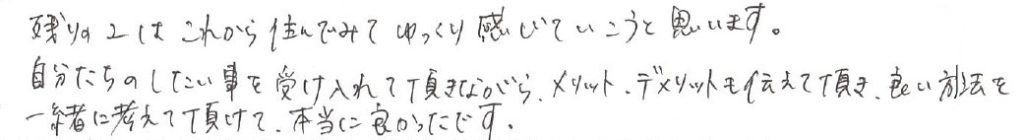 残りの2はこれから住んでみてゆっくり感じていこうと思います。
自分たちのしたい事を受け入れて頂きながら、メリット、デメリットも伝えて頂き、良い方法を
一緒に考えて頂けて、本当に良かったです。